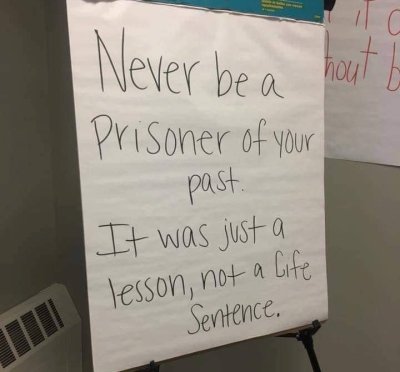 Never be a
Prisoner of your
past.
It was just a
lesson, not a Life
Sentence.